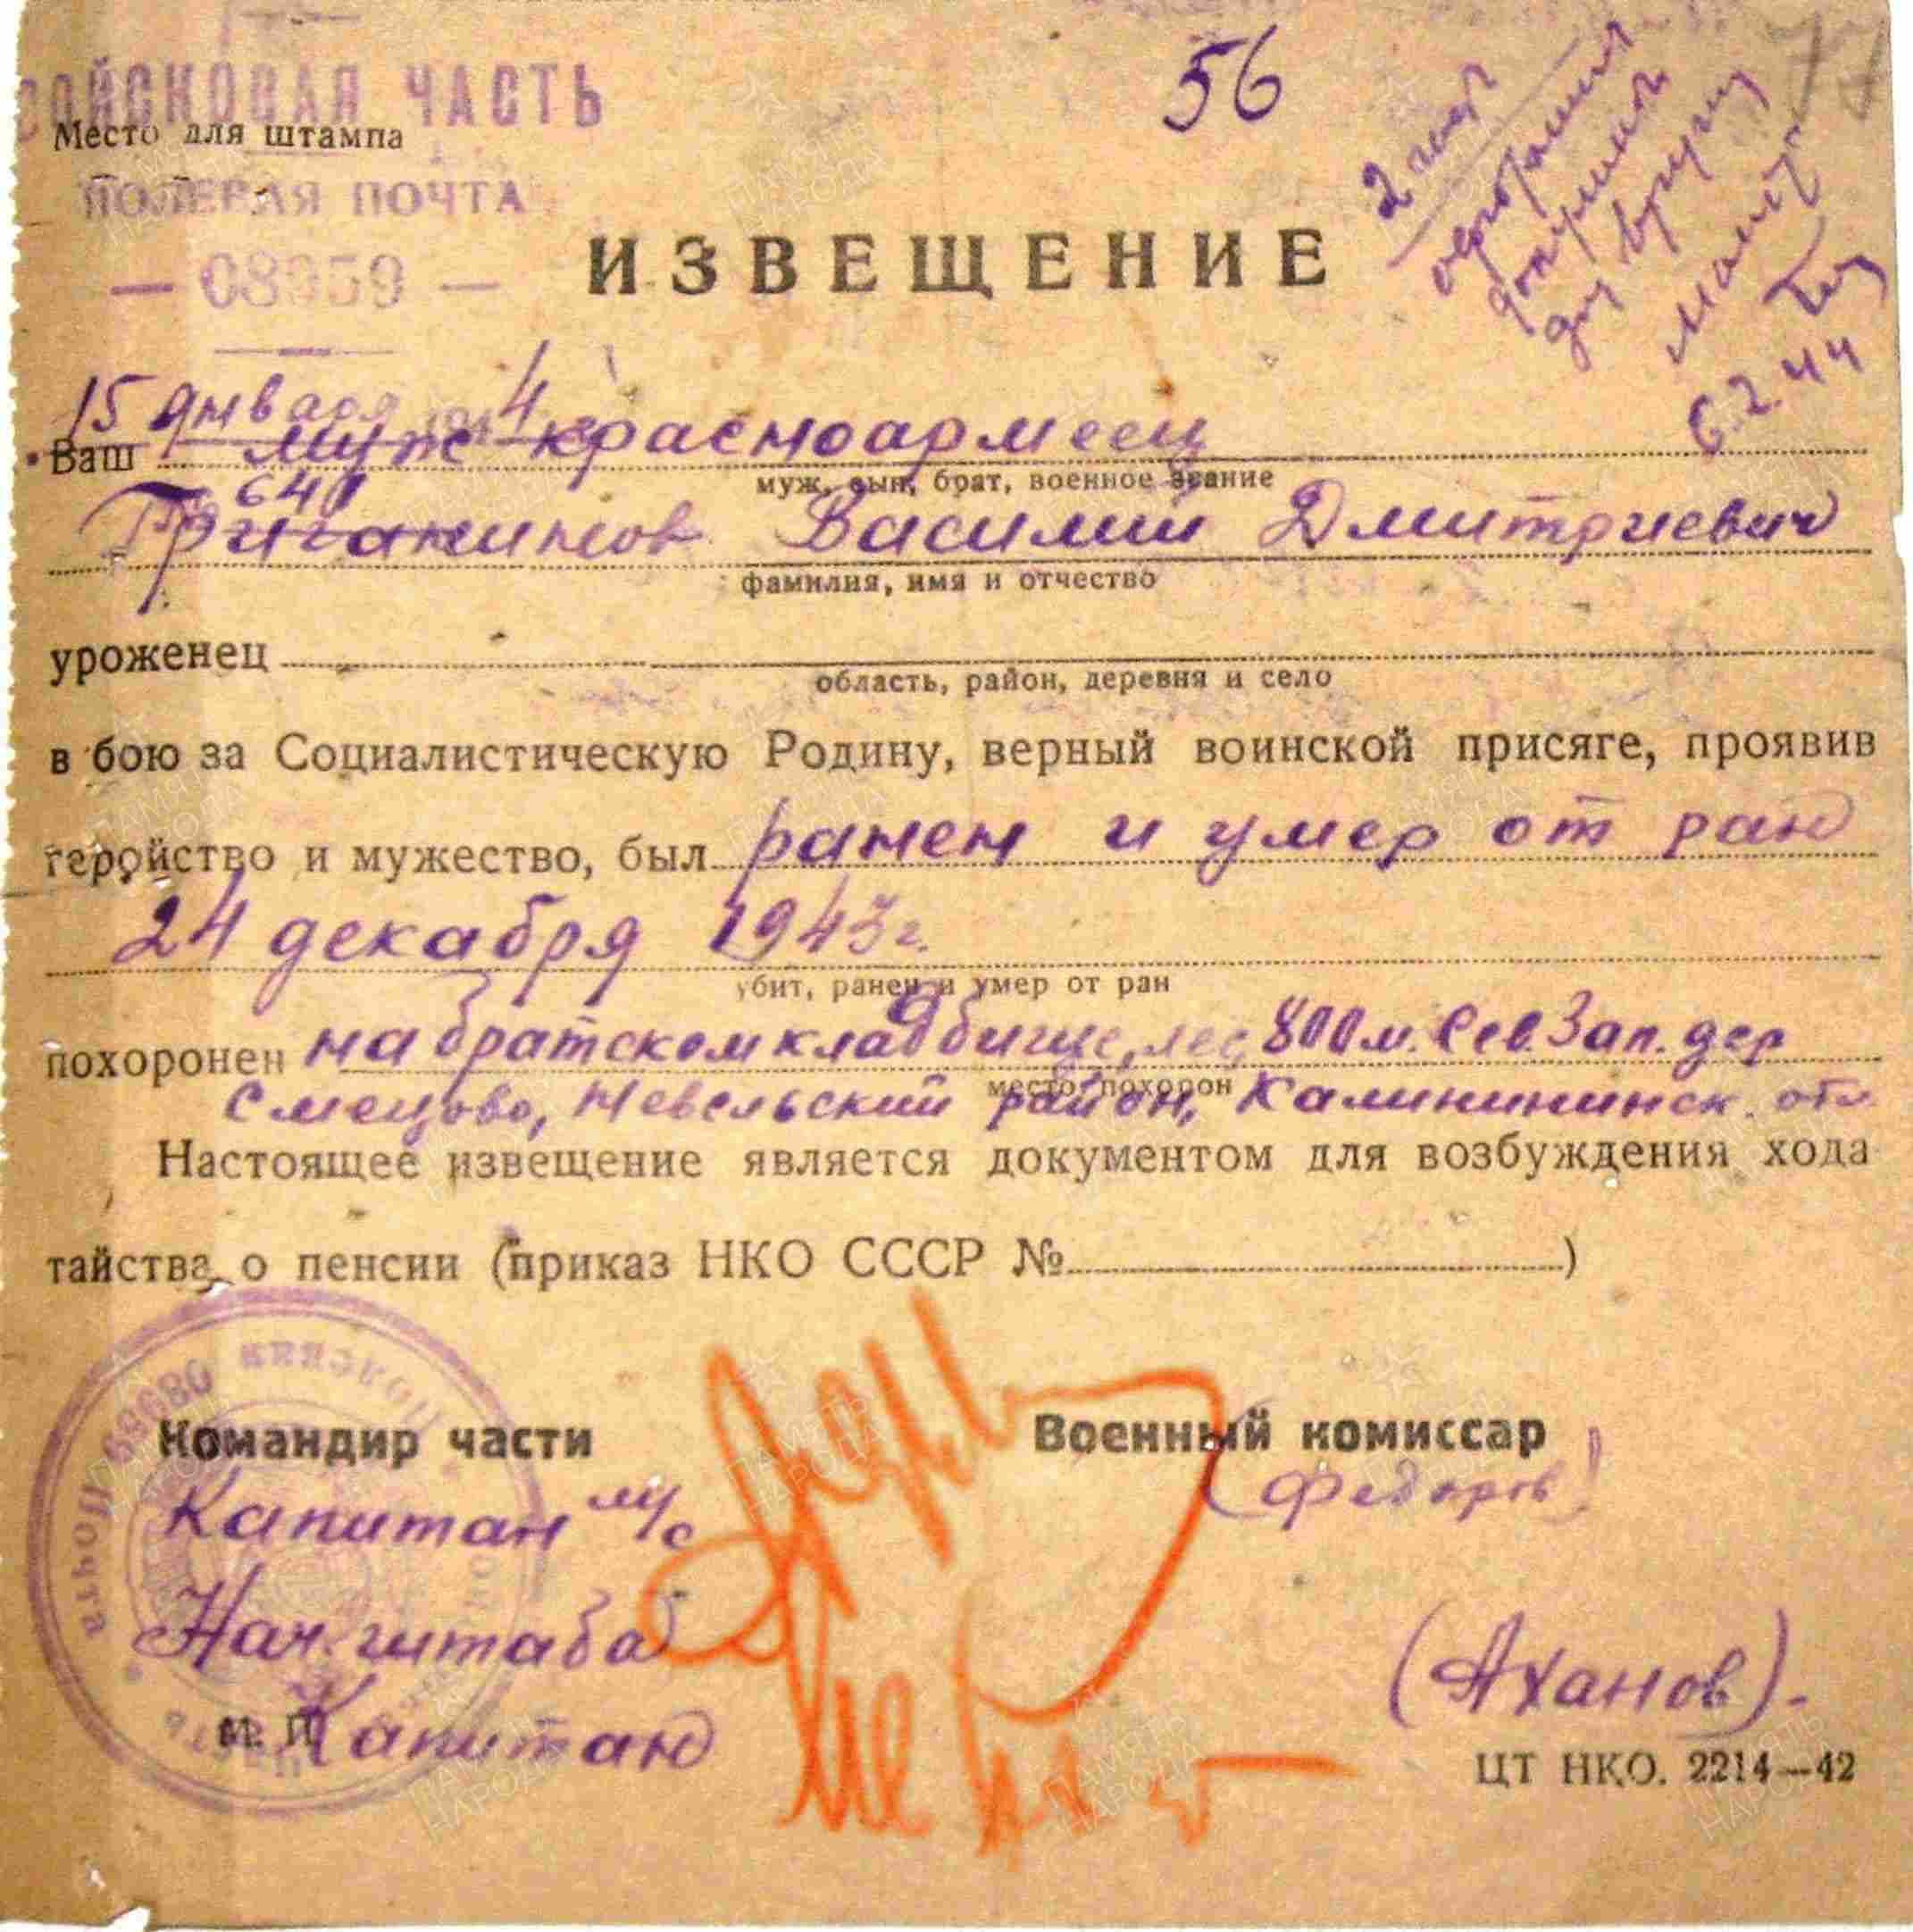 ВОЙСКОВАЯ ЧАСТЬ
Место для штампа
ПОЛЕВАЯ ПОЧТА
56
2
6.2.44
ИЗВЕЩЕНИЕ
15 января 1944
Ваш муж красноармеец
муж, сын, брат, военное звание
640
Василий Дмитриевич
фамилия, имя и отчество
уроженец
область, район, деревня и село
в бою за Социалистическую Родину, верный воинской присяге, проявив
геройство и мужество, был ранен и умер от ран
24 декабря 1943г.
убит, ранен и умер от ран
похоронен на братском кладбище, лес 800 м. Сев. Зап. дер
место похорон
Невельский район, Калининск. обл.
Настоящее извещение является документом для возбуждения хода
тайства о пенсии (приказ НКО СССР № )
Командир части
Военный комиссар
Капитан м/с
(Федоров)
Нач. штаба
Капитан
(Аханов).
М. П.
ЦТ НКО. 2214—42
Полевая Почта
ПАМЯТЬ НАРОДА